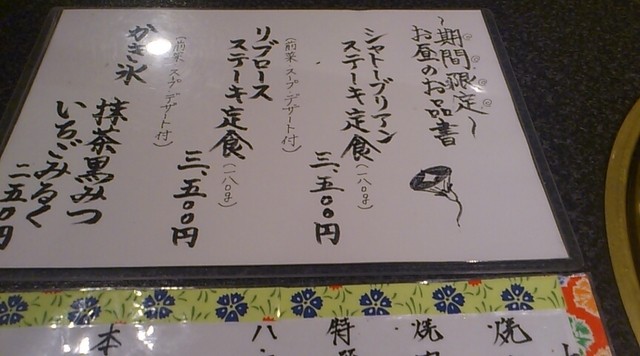 ～期間限定～
お昼のお品書
シャトーブリアン
ステーキ定食(一八〇g)
三、五〇〇円
(前菜 スープ・デザート付)
リブロース
ステーキ定食(一八〇g)
三、五〇〇円
(前菜・スープ・デザート付)
かき氷
抹茶黒みつ
いちごみるく
二五〇円
焼
焼
特
八
本